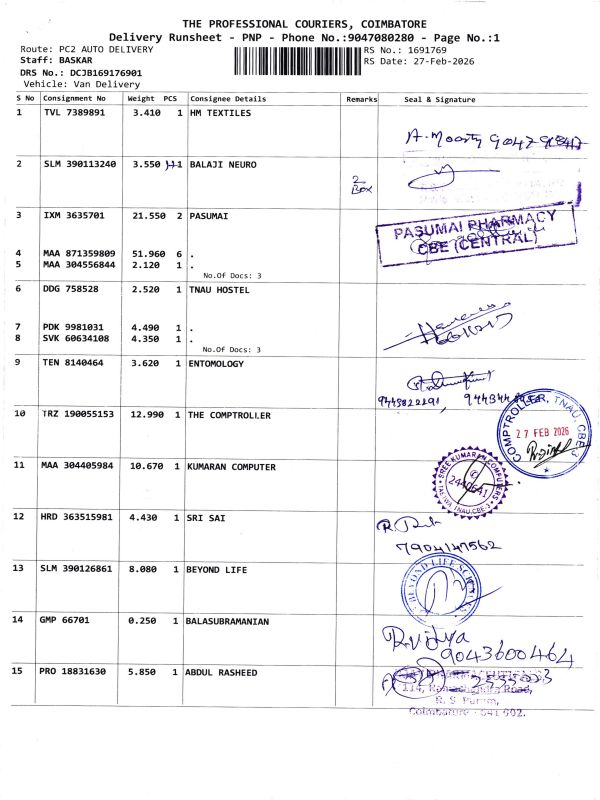 THE PROFESSIONAL COURIERS, COIMBATORE
Delivery Runsheet - PNP - Phone No.:9047080280 - Page No.:1
Route: PC2 AUTO DELIVERY RS No.: 1691769
Staff: BASKAR RS Date: 27-Feb-2026
DRS No.: DCJB169176901
Vehicle: Van Delivery
S No Consignment No Weight PCS Consignee Details Remarks Seal & Signature
1 TVL 7389891 3.410 1 HM TEXTILES
A. Moorty
2 SLM 390113240 3.550 1 BALAJI NEURO
2
Box
3 IXM 3635701 21.550 2 PASUMAI
PASUMAI PHARMACY
CBE (CENTRAL)
4 MAA 871359809 51.960 6 .
5 MAA 304556844 2.120 1 .
No.Of Docs: 3
6 DDG 758528 2.520 1 TNAU HOSTEL
7 PDK 9981031 4.490 1 .
8 SVK 60634108 4.350 1 .
No.Of Docs: 3
9 TEN 8140464 3.620 1 ENTOMOLOGY
10 TRZ 190055153 12.990 1 THE COMPTROLLER
COMPTROLLER, TNAU, CBE-3
27 FEB 2026
11 MAA 304405984 10.670 1 KUMARAN COMPUTER
SREE KUMARAN COMPUTERS
2440641
TNAU, CBE-3
12 HRD 363515981 4.430 1 SRI SAI
7904147562
13 SLM 390126861 8.080 1 BEYOND LIFE
BEYOND LIFE SCIENCES
14 GMP 66701 0.250 1 BALASUBRAMANIAN
R.Vidya
9043600464
15 PRO 18831630 5.850 1 ABDUL RASHEED
114, Ramachandra Road,
R. S. Puram,
Coimbatore - 641 002.